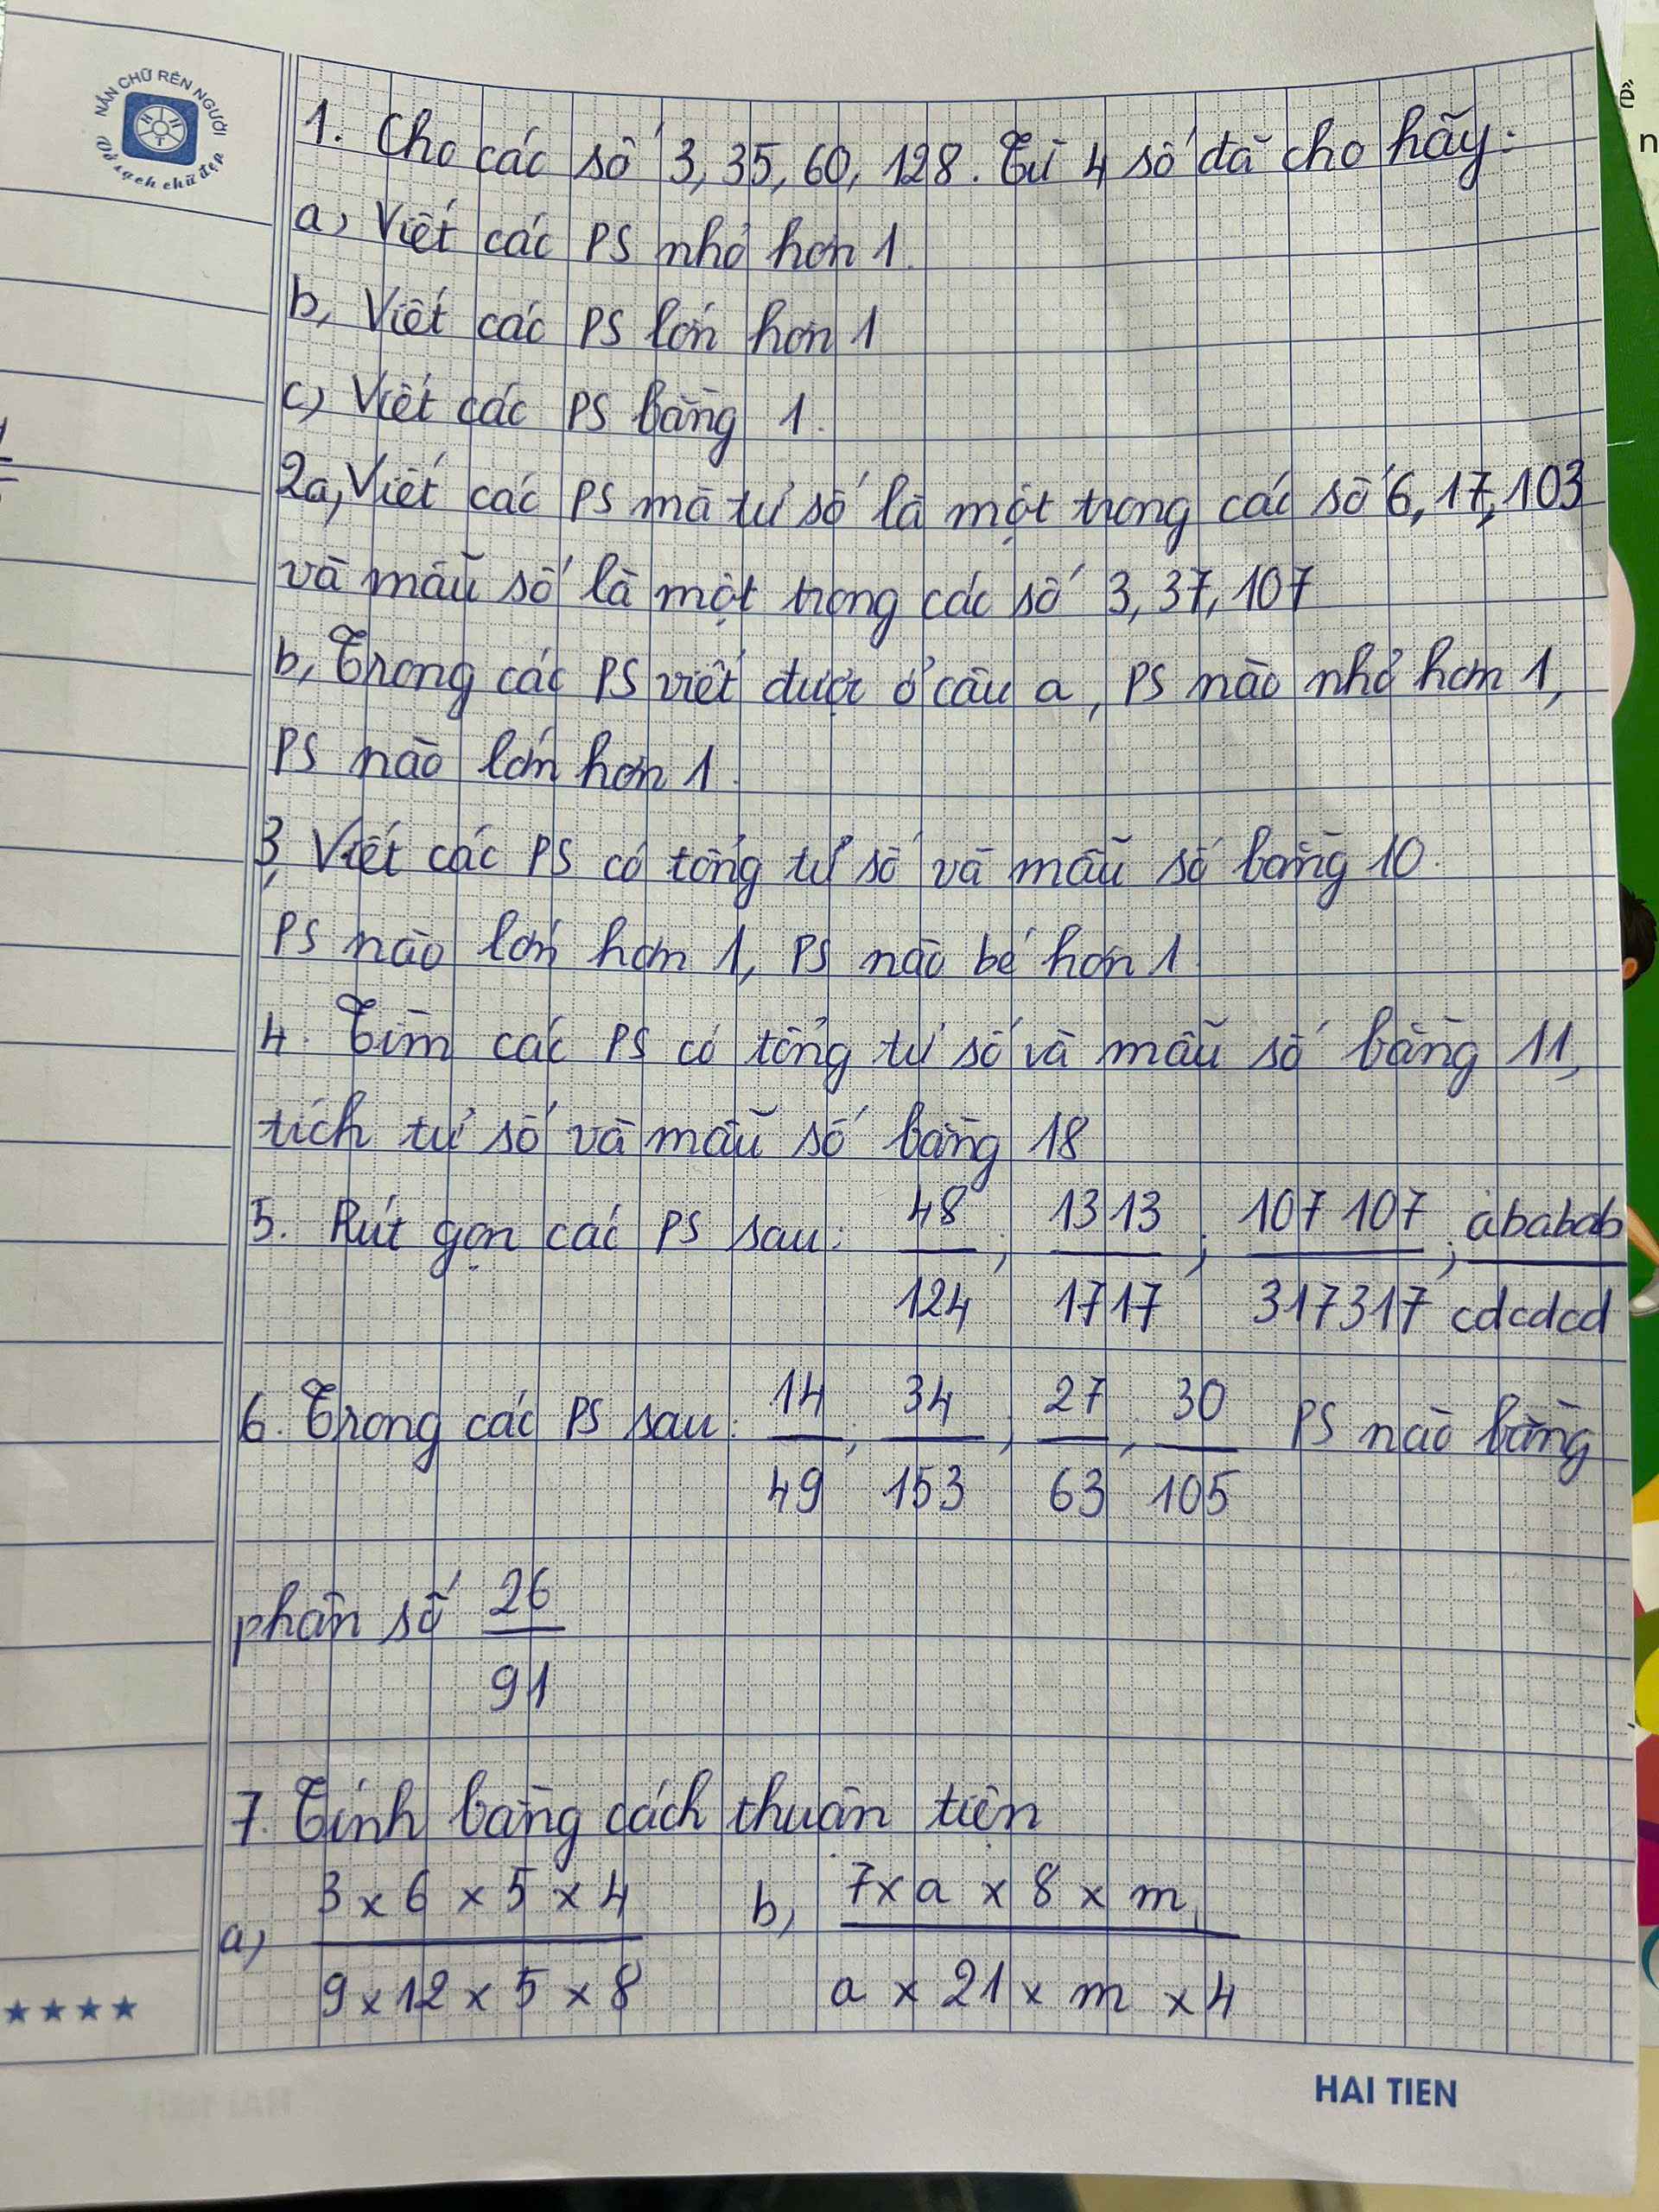 NẮN CHỮ RÈN NGƯỜI
Vở sạch chữ đẹp
1. Cho các số 3, 35, 60, 128. Từ 4 số đã cho hãy:
a) Viết các PS nhỏ hơn 1.
b, Viết các PS lớn hơn 1
c) Viết các PS bằng 1.
2a, Viết các PS mà tử số là một trong các số 6, 17, 103
và mẫu số là một trong các số 3, 37, 107
b, Trong các PS viết được ở câu a, PS nào nhỏ hơn 1,
PS nào lớn hơn 1.
3, Viết các PS có tổng tử số và mẫu số bằng 10.
PS nào lớn hơn 1, PS nào bé hơn 1
4. Tìm các PS có tổng tử số và mẫu số bằng 11,
tích tử số và mẫu số bằng 18
5. Rút gọn các PS sau: 48/124 ; 1313/1717 ; 107 107/317317 ; ababab/cdcdcd
6. Trong các PS sau: 14/49 ; 34/153 ; 27/63 , 30/105 PS nào bằng
phân số 26/91
7. Tính bằng cách thuận tiện
a) 3 x 6 x 5 x 4 / 9 x 12 x 5 x 8 b, 7 x a x 8 x m / a x 21 x m x 4
HAI TIEN